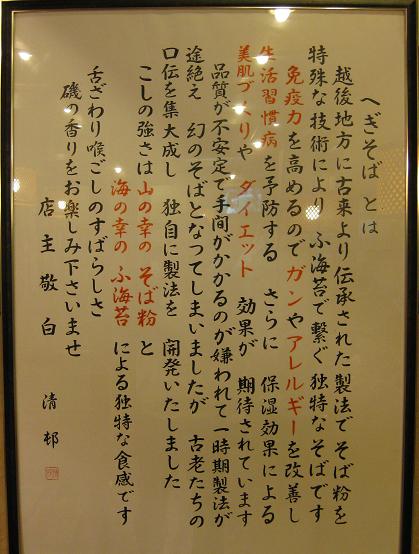 へぎそば とは
越後地方に古来より伝承された製法でそば粉を
特殊な技術により ふ海苔で繋ぐ独特なそばです
免疫力を高めるのでガンやアレルギーを改善し
生活習慣病を予防する さらに 保湿効果による
美肌づくりや ダイエット 効果が 期待されています
品質が不安定で手間がかかるのが嫌われて一時期製法が
途絶え 幻のそばとなつてしまいましたが 古老たちの
口伝を集大成し 独自に製法を 開発いたしました
こしの強さは 山の幸の そば粉 と
海の幸の ふ海苔 による独特な食感です
舌ざわり喉ごしのすばらしさ
磯の香りをお楽しみ下さいませ
店主敬白 清邨